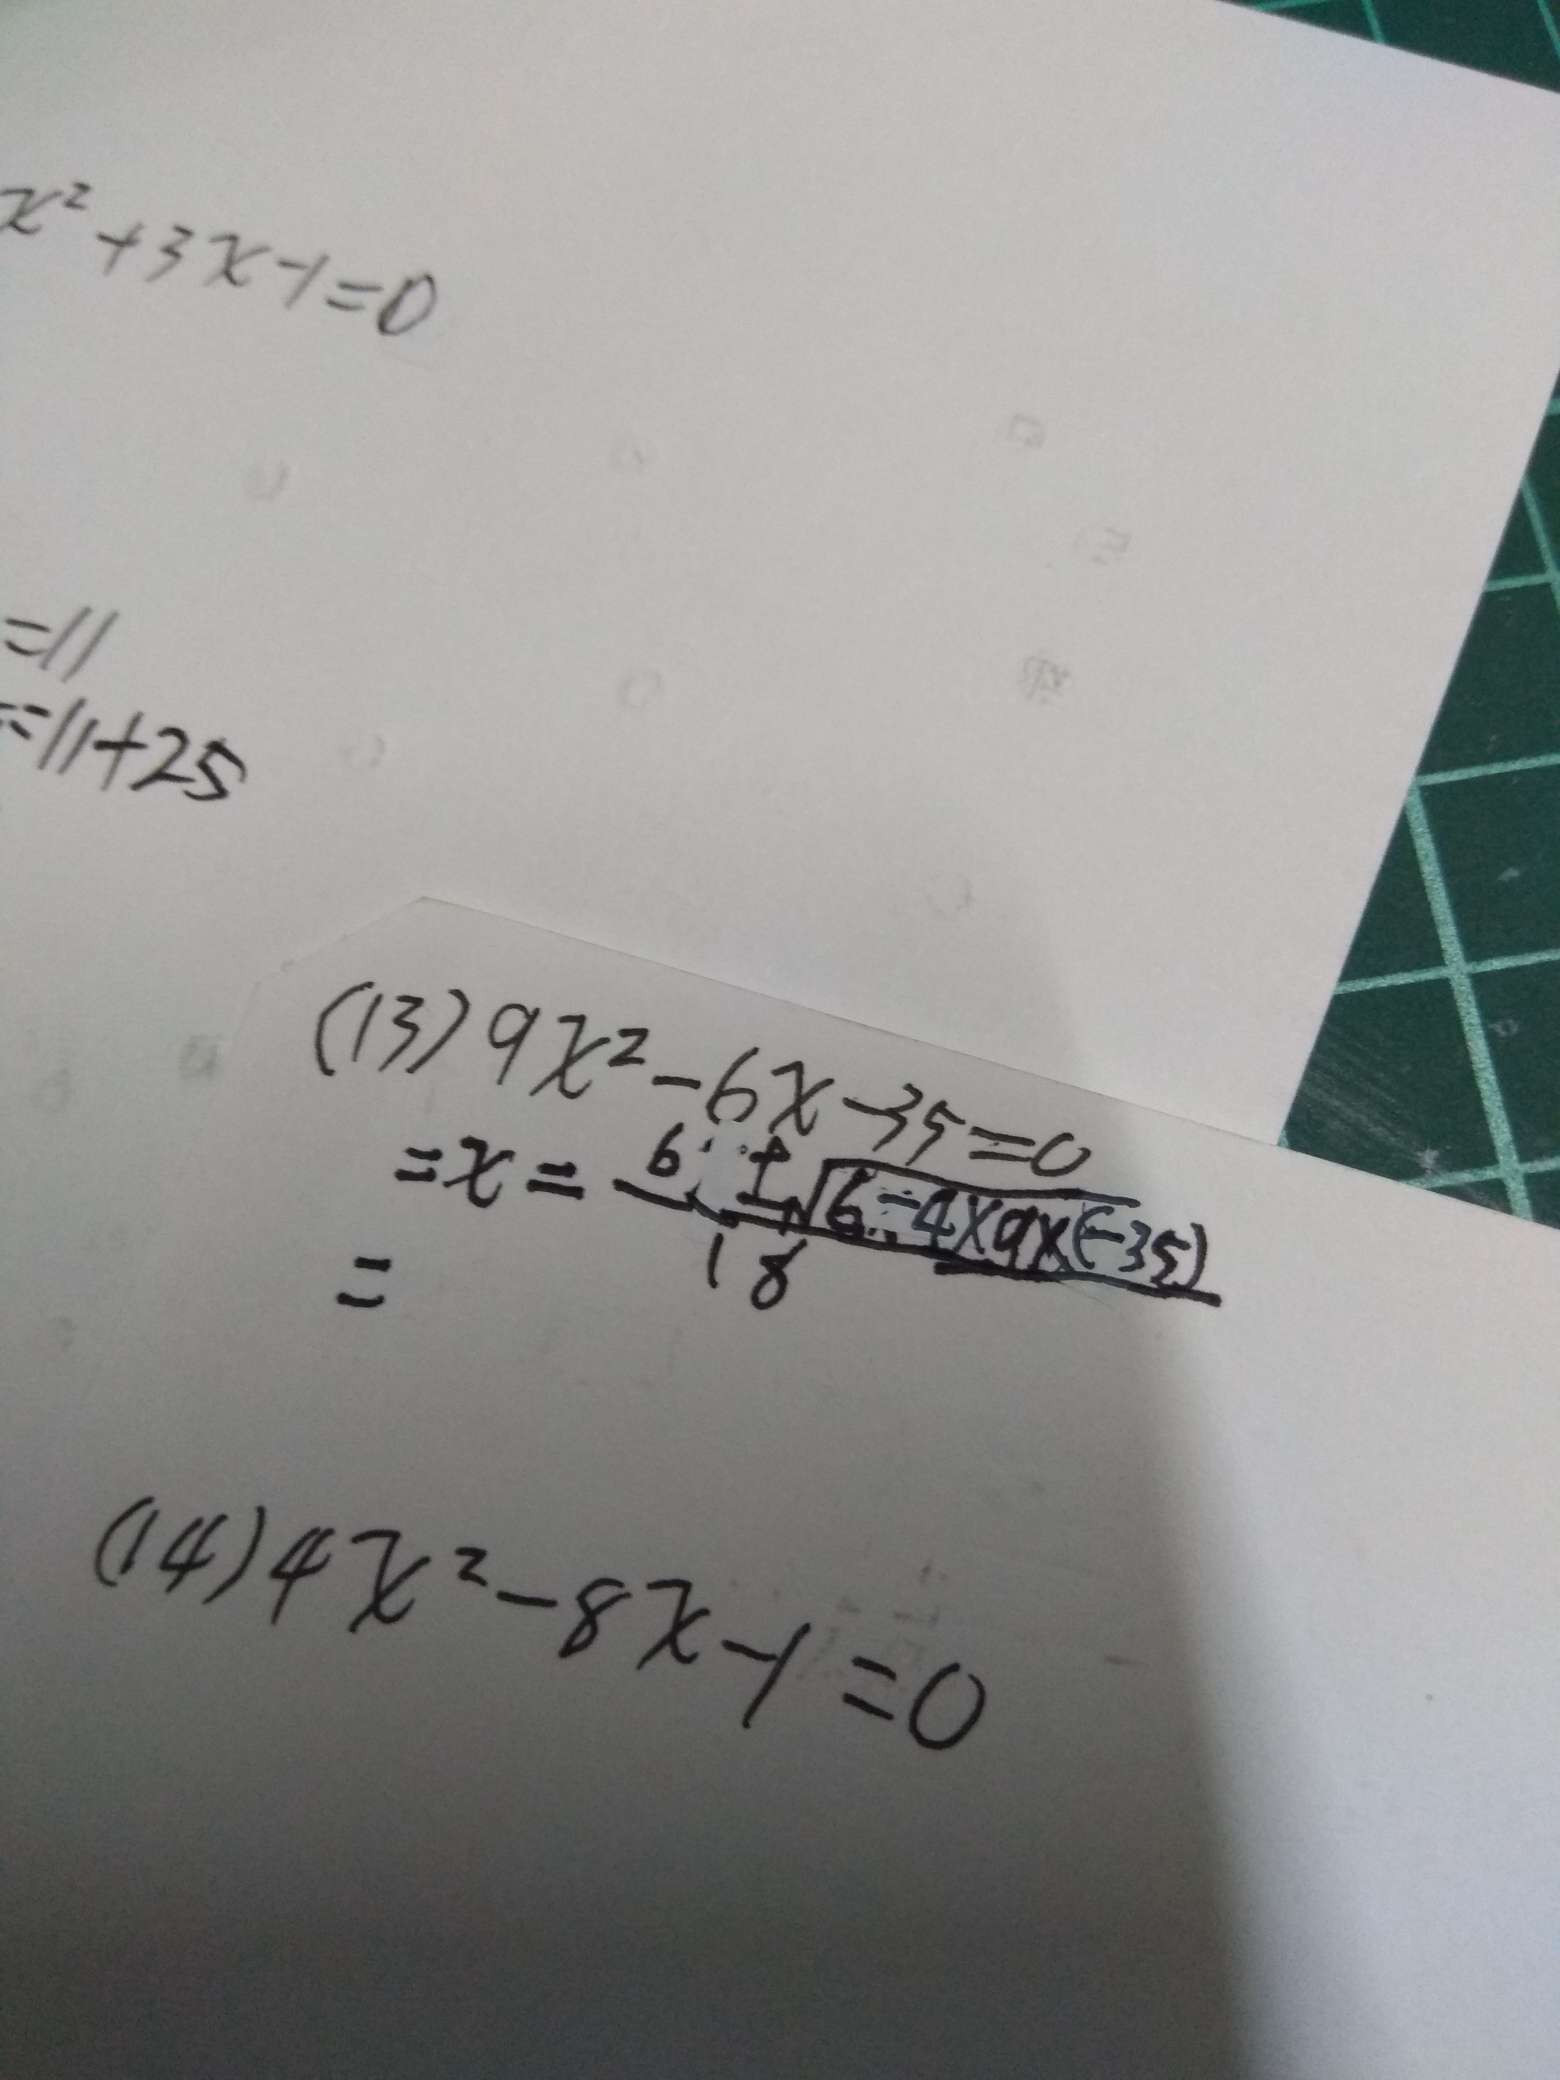 x²+3x-1=0
=11
=11+25
(13) 9x²-6x-35=0
=x= 6±√6-4×9×(-35)
18
=
(14) 4x²-8x-1=0